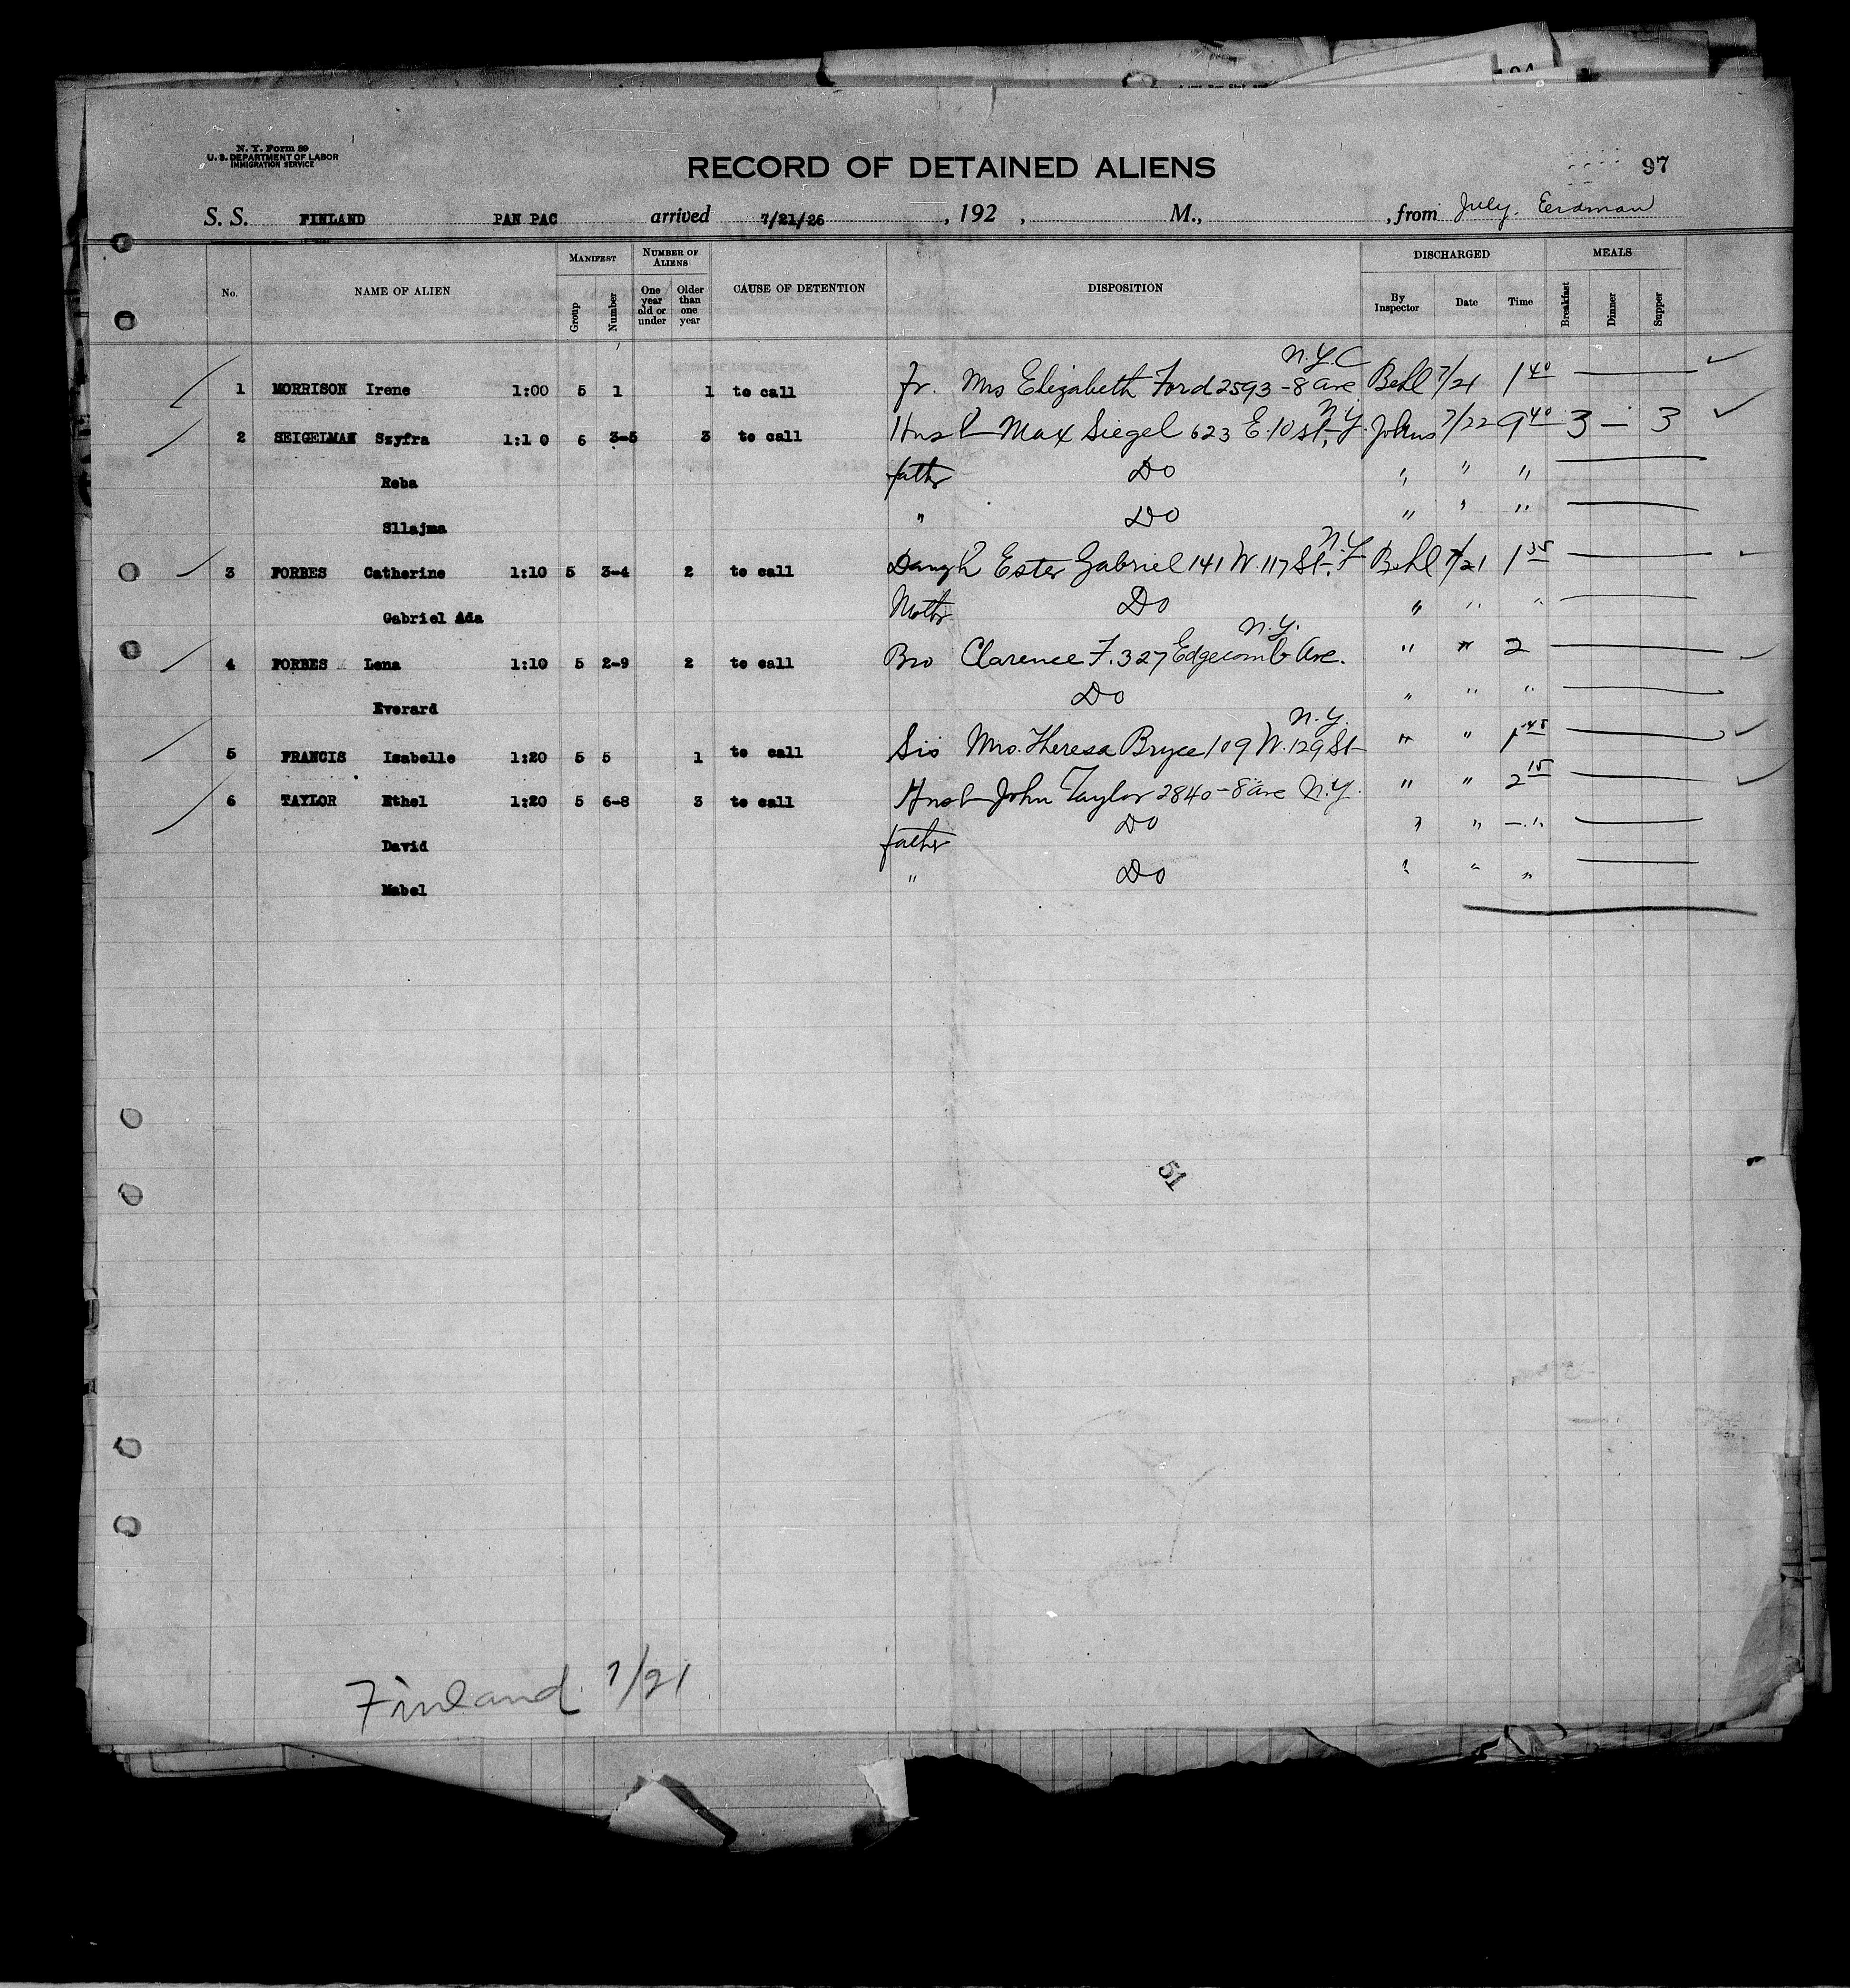 N. Y. Form 89
U. S. DEPARTMENT OF LABOR
IMMIGRATION SERVICE
RECORD OF DETAINED ALIENS 97
S. S. FINLAND PAN PAC arrived 7/21/26 , 192 , M., , from July. Eerdman
No. NAME OF ALIEN MANIFEST Group Number NUMBER OF ALIENS One year old or under Older than one year CAUSE OF DETENTION DISPOSITION DISCHARGED By Inspector Date Time MEALS Breakfast Dinner Supper
N.Y.C
1 MORRISON Irene 1:00 5 1 1 to call fr. Mrs Elizabeth Ford 2593 - 8 Ave Behl 7/21 1 40
2 SEIGELMAN Szyfra 1:1 0 6 3-5 3 to call Husb Max Siegel 623 E. 10 St, N.Y. Johns 7/22 9 40 3 — 3
Reba father Do " " "
Sllajma " Do " " "
3 FORBES Catherine 1:10 5 3-4 2 to call Daugh Ester Gabriel 141 W. 117 St. N.Y. Behl 7/21 1 35
Gabriel Ada Mother Do " " "
N.Y.
4 FORBES Lena 1:10 5 2-9 2 to call Bro Clarence F. 327 Edgecomb Ave. " " 2
Everard Do " " "
N.Y.
5 FRANCIS Isabelle 1:20 5 5 1 to call Sis Mrs. Theresa Bryce 109 W. 129 St " " 1 45
6 TAYLOR Ethel 1:20 5 6-8 3 to call Husb John Taylor 2840 - 8 Ave N.Y. " " 2 15
David father Do " " "
Mabel " Do " " "
51
Finland. 7/21